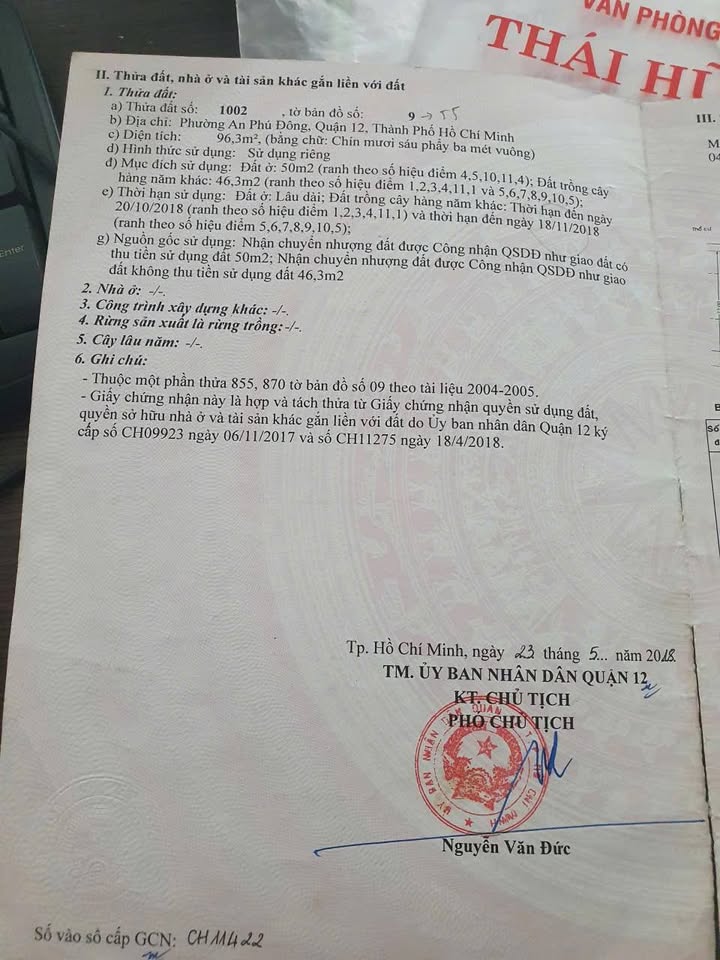 VĂN PHÒNG
THÁI HỮ
II. Thửa đất, nhà ở và tài sản khác gắn liền với đất
1. Thửa đất:
a) Thửa đất số: 1002 , tờ bản đồ số: 9 → 55
b) Địa chỉ: Phường An Phú Đông, Quận 12, Thành Phố Hồ Chí Minh
c) Diện tích: 96,3m², (bằng chữ: Chín mươi sáu phẩy ba mét vuông)
d) Hình thức sử dụng: Sử dụng riêng
đ) Mục đích sử dụng: Đất ở: 50m2 (ranh theo số hiệu điểm 4,5,10,11,4); Đất trồng cây
hàng năm khác: 46,3m2 (ranh theo số hiệu điểm 1,2,3,4,11,1 và 5,6,7,8,9,10,5);
e) Thời hạn sử dụng: Đất ở: Lâu dài; Đất trồng cây hàng năm khác: Thời hạn đến ngày
20/10/2018 (ranh theo số hiệu điểm 1,2,3,4,11,1) và thời hạn đến ngày 18/11/2018
(ranh theo số hiệu điểm 5,6,7,8,9,10,5);
g) Nguồn gốc sử dụng: Nhận chuyển nhượng đất được Công nhận QSDĐ như giao đất có
thu tiền sử dụng đất 50m2; Nhận chuyển nhượng đất được Công nhận QSDĐ như giao
đất không thu tiền sử dụng đất 46,3m2
2. Nhà ở: -/-.
3. Công trình xây dựng khác: -/-.
4. Rừng sản xuất là rừng trồng:-/-.
5. Cây lâu năm: -/-.
6. Ghi chú:
- Thuộc một phần thửa 855, 870 tờ bản đồ số 09 theo tài liệu 2004-2005.
- Giấy chứng nhận này là hợp và tách thửa từ Giấy chứng nhận quyền sử dụng đất,
quyền sở hữu nhà ở và tài sản khác gắn liền với đất do Ủy ban nhân dân Quận 12 ký
cấp số CH09923 ngày 06/11/2017 và số CH11275 ngày 18/4/2018.
Tp. Hồ Chí Minh, ngày 23 tháng 5... năm 2018.
TM. ỦY BAN NHÂN DÂN QUẬN 12
KT. CHỦ TỊCH
PHÓ CHỦ TỊCH
Nguyễn Văn Đức
Số vào sổ cấp GCN: CH11422
III.
M
04
B
Số
đ
Enter